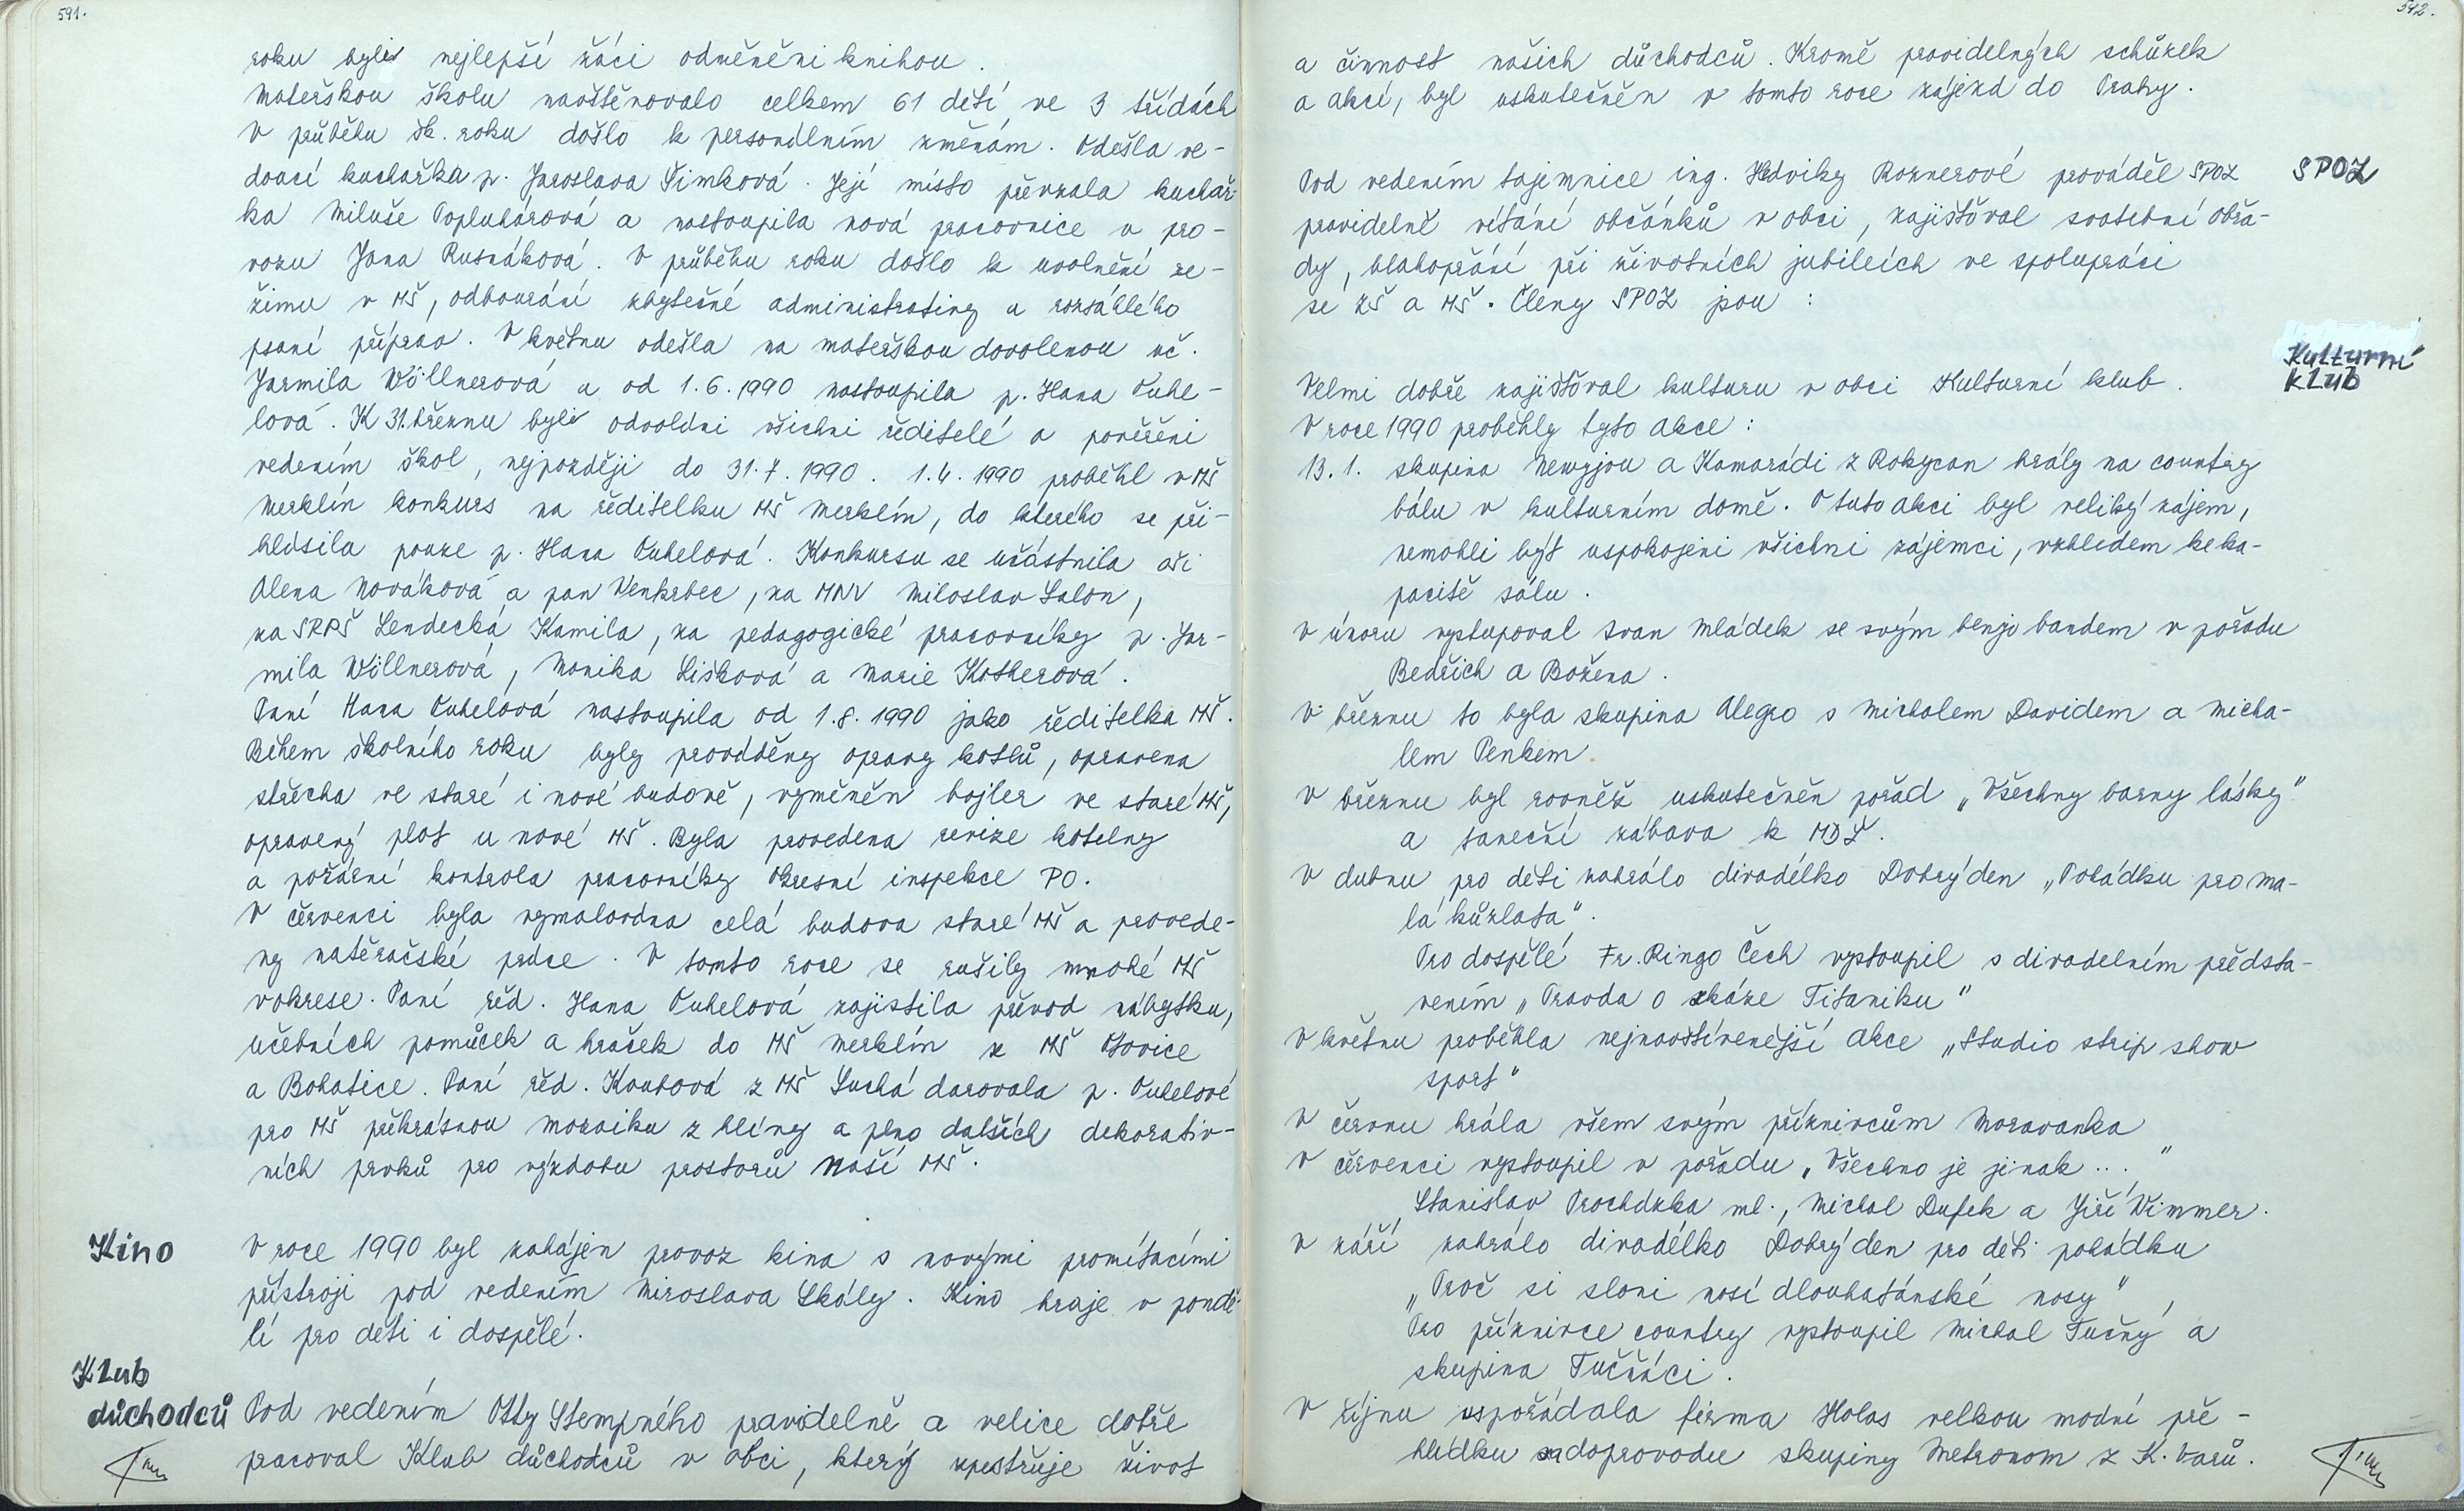 591.
roku byli nejlepší žáci odměněni knihou.
Mateřskou školu navštěvovalo celkem 61 dětí ve 3 třídách
V průběhu šk. roku došlo k personálním změnám. Odešla ve-
doucí kuchařka p. Jaroslava Šimková. Její místo převzala kuchař-
ka Miluše Popluhárová a nastoupila nová pracovnice v pro-
vozu Jana Rusnáková. V průběhu roku došlo k uvolnění re-
žimu v MŠ, odbourání zbytečné administrativy a rozsáhlého
psaní příprav. V květnu odešla na mateřskou dovolenou uč.
Jarmila Wöllnerová a od 1.6.1990 nastoupila p. Hana Čuhe-
lová. K 31. březnu byli odvoláni všichni ředitelé a pověřeni
vedením škol, nejpozději do 31.7.1990. 1.4.1990 proběhl v MŠ
Merklín konkurs na ředitelku MŠ Merklín, do kterého se při-
hlásila pouze p. Hana Čuhelová. Konkursu se účastnila oši
Alena Nováková a pan Venkrbec, za MNV Miloslav Šalon,
za SRPŠ Lendecká Kamila, za pedagogické pracovníky p. Jar-
mila Wöllnerová, Monika Lišková a Marie Kotherová.
Paní Hana Čuhelová nastoupila od 1.8.1990 jako ředitelka MŠ.
Během školního roku byly prováděny opravy kotlů, opravena
střecha ve staré i nové budově, vyměněn bojler ve staré MŠ,
opravený plot u nové MŠ. Byla provedena revize kotelny
a požární kontrola pracovníky Okresní inspekce PO.
V červenci byla vymalována celá budova staré MŠ a provede-
ny natěračské práce. V tomto roce se rušily mnohé MŠ
v okrese. Paní řed. Hana Čuhelová zajistila převod nábytku,
učebních pomůcek a hraček do MŠ Merklín z MŠ Otovice
a Bohatice. Paní řed. Koubová z MŠ Suchá darovala p. Čuhelové
pro MŠ překrásnou mozaiku z hlíny a plno dalších dekorativ-
ních prvků pro výzdobu prostorů naší MŠ.
Kino
V roce 1990 byl zahájen provoz kina s novými promítacími
přístroji pod vedením Miroslava Skály. Kino hraje v pondě-
lí pro děti i dospělé.
Klub
důchodců
Pod vedením Otty Stempného pravidelně a velice dobře
pracoval Klub důchodců v obci, který zpestřuje život
542.
a činnost našich důchodců. Kromě pravidelných schůzek
a akcí, byl uskutečněn v tomto roce zájezd do Prahy.
SPOZ
Pod vedením tajemnice ing. Hedviky Roznerové prováděl SPOZ
pravidelně vítání občánků v obci, zajišťoval svatební obřa-
dy, blahopřání při životních jubileích ve spolupráci
se ZŠ a MŠ. Členy SPOZ jsou :
Kulturní
klub
Velmi dobře zajišťoval kulturu v obci Kulturní klub.
V roce 1990 proběhly tyto akce :
13.1. skupina Newyjou a Kamarádi z Rokycan hrály na country
bálu v kulturním domě. O tuto akci byl veliký zájem,
nemohli být uspokojeni všichni zájemci, vzhledem ke ka-
pacitě sálu.
V únoru vystupoval Ivan Mládek se svým benjo bandem v pořadu
Bedřich a Božena.
V březnu to byla skupina Alegro s Michalem Davidem a Micha-
lem Penkem.
V březnu byl rovněž uskutečněn pořad „Všechny barvy lásky"
a taneční zábava k MDŽ.
V dubnu pro děti zahrálo divadélko Dobrý den „Pohádku pro ma-
lá kůzlata".
Pro dospělé Fr. Ringo Čech vystoupil s divadelním předsta-
vením „Pravda o zkáze Titaniku"
V květnu proběhla nejnavštívenější akce „Studio strip show
sport"
V červnu hrála všem svým příznivcům Moravanka
V červenci vystoupil v pořadu „Všechno je jinak..."
Stanislav Procházka ml., Michal Dufek a Jiří Wimmer.
V září zahrálo divadélko Dobrý den pro děti pohádku
„Proč si sloni nosí dlouhatánské nosy",
Pro příznivce country vystoupil Michal Tučný a
skupina Tučňáci.
V říjnu uspořádala firma Holas velkou modní pře-
hlídku za doprovodu skupiny Metronom z K. Varů.